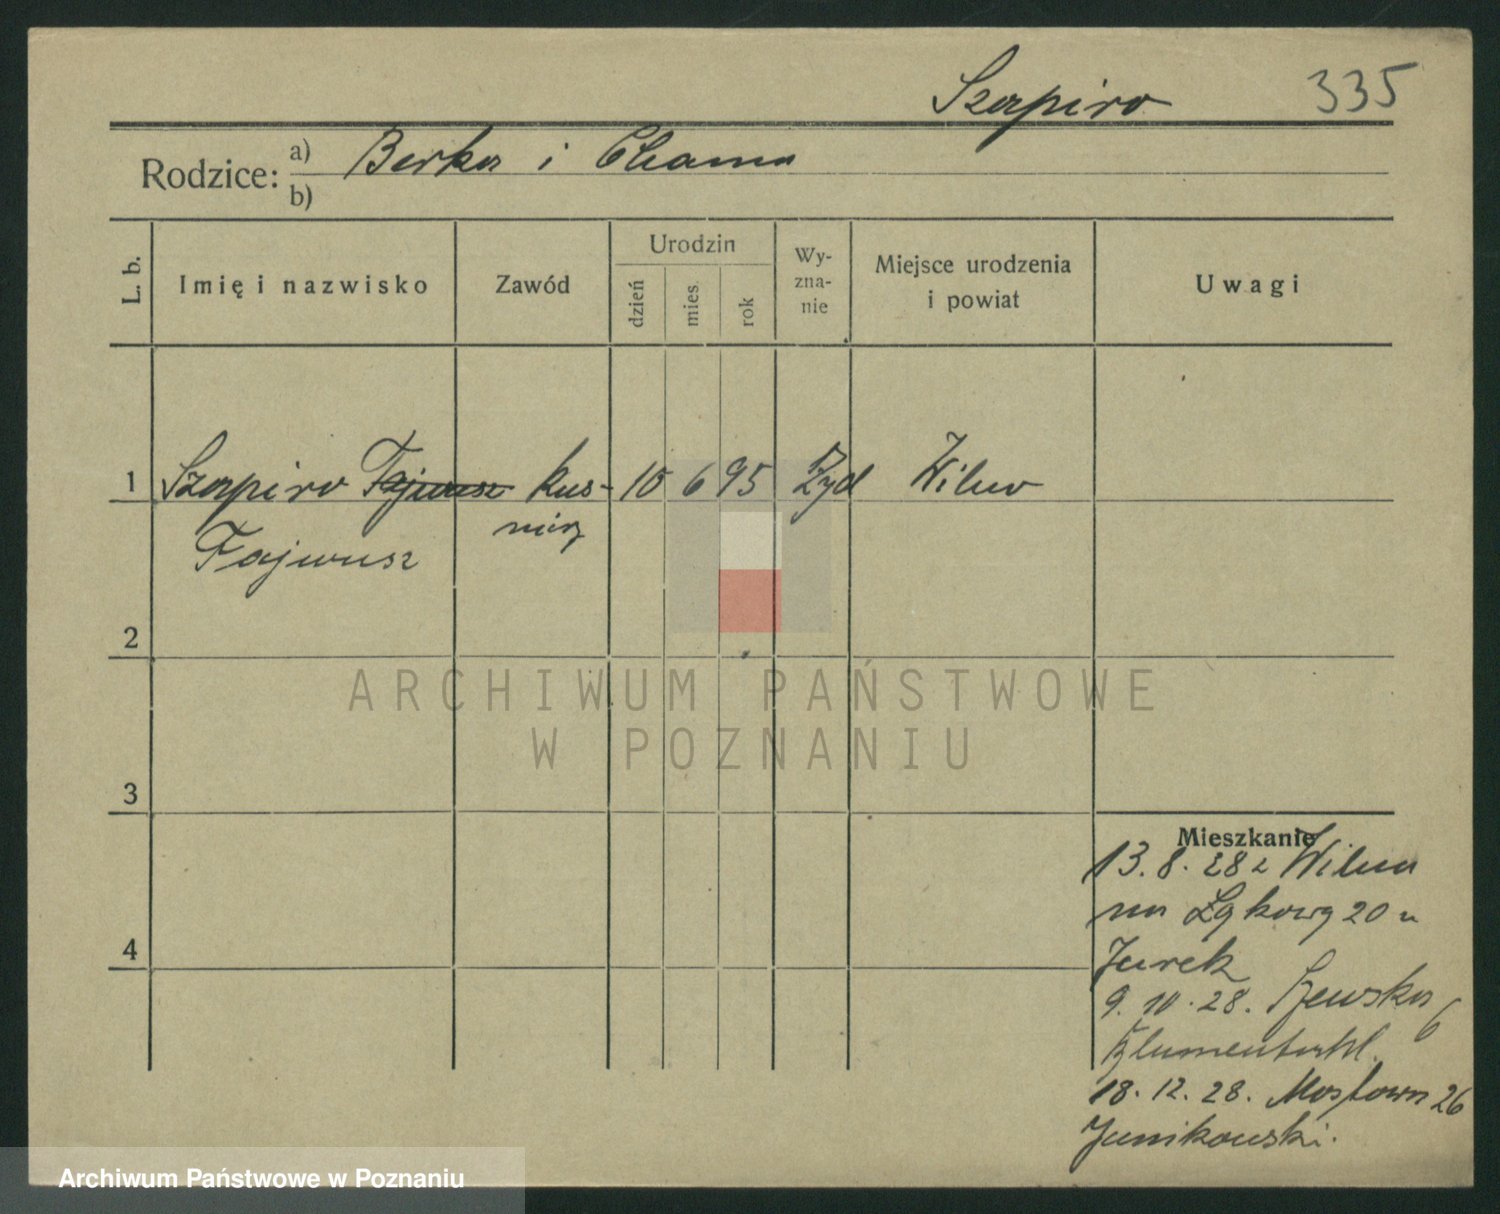 Szapiro 335
Rodzice: a) Berka i Chama
b)
L. b. Imię i nazwisko Zawód Urodzin dzień mies. rok Wyznanie Miejsce urodzenia i powiat Uwagi
1 Szapiro Fajwusz kus- 10 6 95 Żyd Wilno
Fajwusz nierz
2
ARCHIWUM PAŃSTWOWE
W POZNANIU
3
Mieszkanie
4
13. 8. 28 z Wilna
na Łąkową 20 u
Jurek
9. 10. 28. Szewska 6
Blumentahl.
18. 12. 28. Mostowa 26
Junikowski.
Archiwum Państwowe w Poznaniu